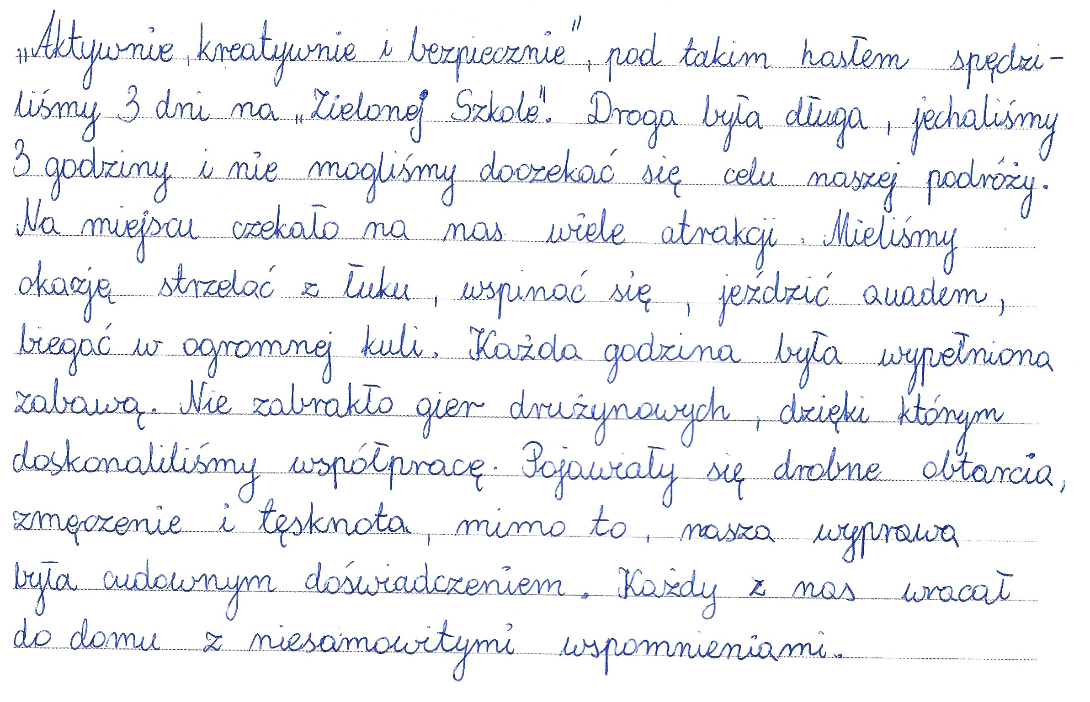 „Aktywnie, kreatywnie i bezpiecznie", pod takim hasłem spędzi-
liśmy 3 dni na „Zielonej Szkole". Droga była długa, jechaliśmy
3 godziny i nie mogliśmy doczekać się celu naszej podróży.
Na miejscu czekało na nas wiele atrakcji. Mieliśmy
okazję strzelać z łuku, wspinać się, jeździć quadem,
biegać w ogromnej kuli. Każda godzina była wypełniona
zabawą. Nie zabrakło gier drużynowych, dzięki którym
doskonaliliśmy współpracę. Pojawiały się drobne obtarcia,
zmęczenie i tęsknota, mimo to, nasza wyprawa
była cudownym doświadczeniem. Każdy z nas wracał
do domu z niesamowitymi wspomnieniami.